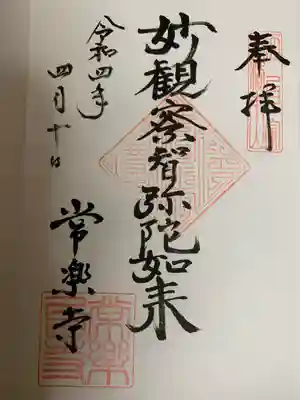 奉拝
妙觀察智弥陀如来
令和四年
四月十日
常楽寺